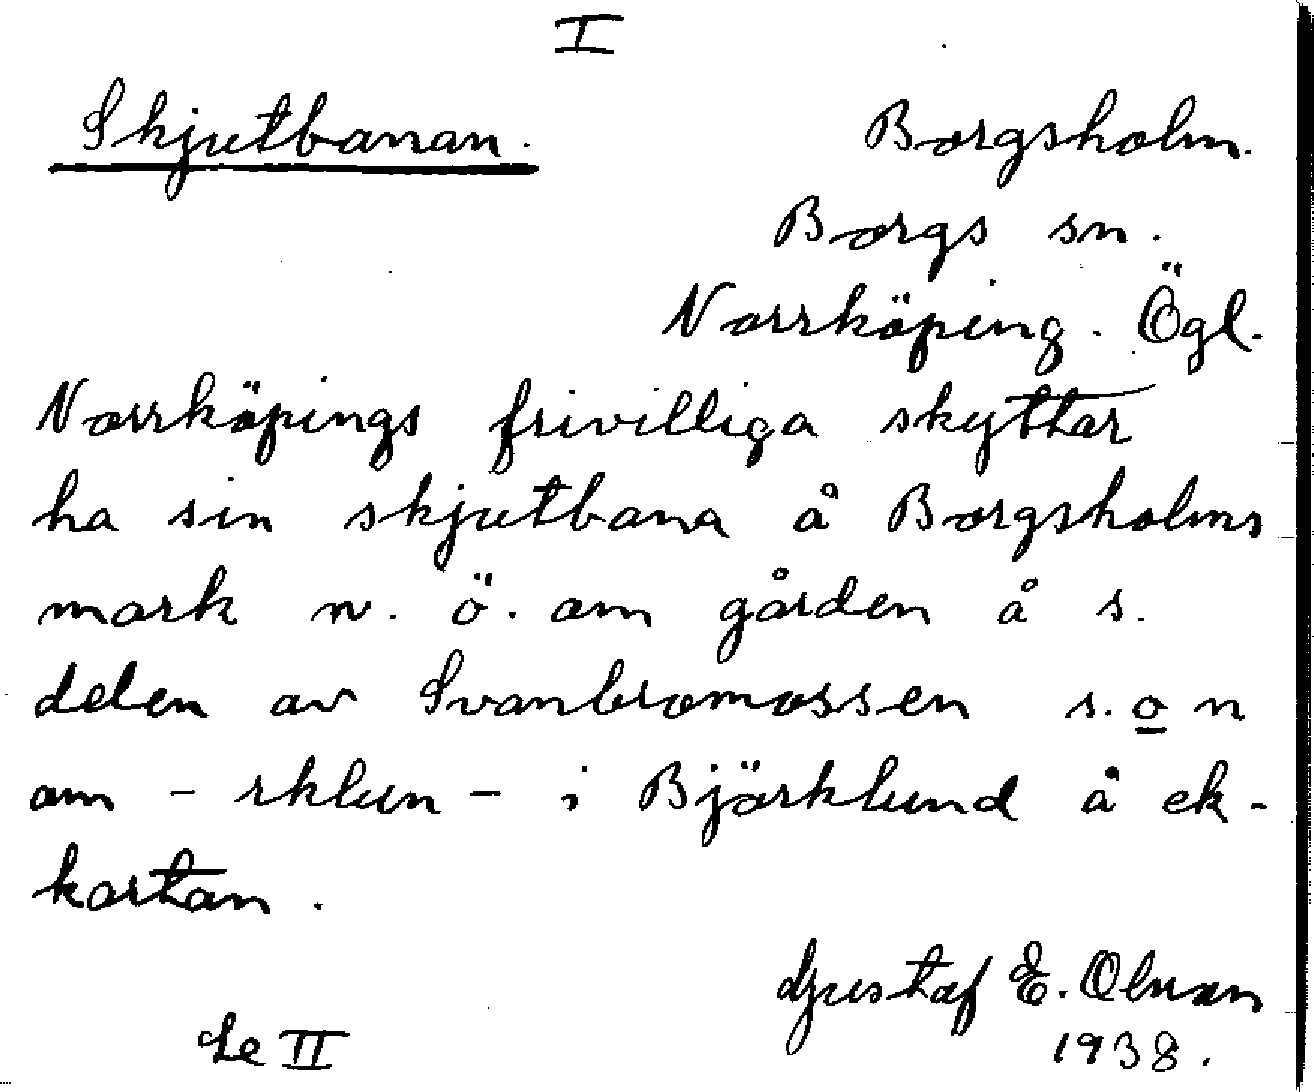 I
Skjutbanan.
Borgsholm.
Borgs sn.
Norrköping. Ögl.
Norrköpings frivilliga skyttar
ha sin skjutbana å Borgsholms
mark n. ö. om gården å s.
delen av Svanbromossen s. o n
om - rklun - i Björklund å ek-
kartan.
Gustaf E. Olsson
1938.
Se II